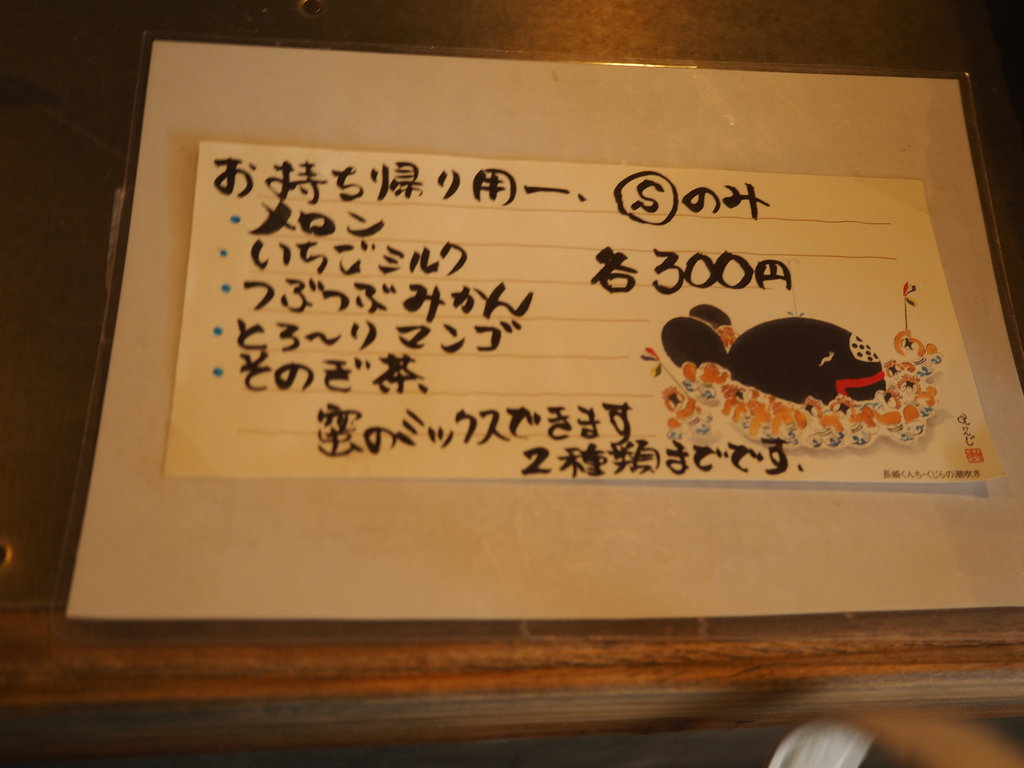 お持ち帰り用ー、Ⓢのみ
・メロン
・いちごミルク
各300円
・つぶつぶみかん
・とろ〜りマンゴ
・そのぎ茶、
蜜のミックスできます
2種類までです、
長崎くんち・くじらの潮吹き